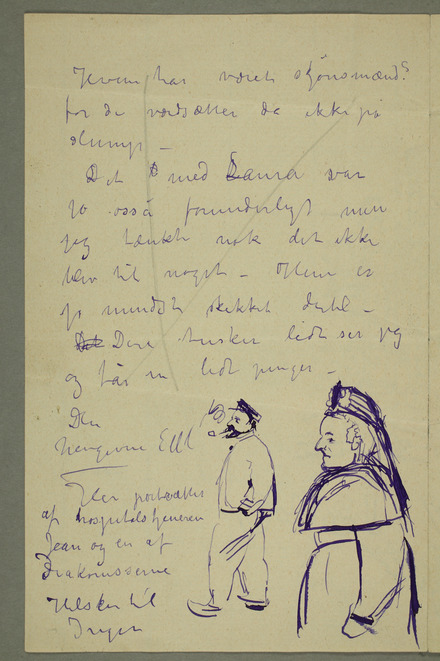 Hvem har været skjönsmænd?
for de vurdsætter da ikke på
slump —
Det med Laura var
jo også forunderligt men
jeg tænkte nok det ikke
blev til noget — Hun er
jo mindst skikket dertil —
Dere husker lidt ser jeg
og får nu lidt penger —
Din
hengivne EM
Her portrætter
af hospitalstjeneren
Jean og en af
Diakonisserne
Hilsen til
Inger